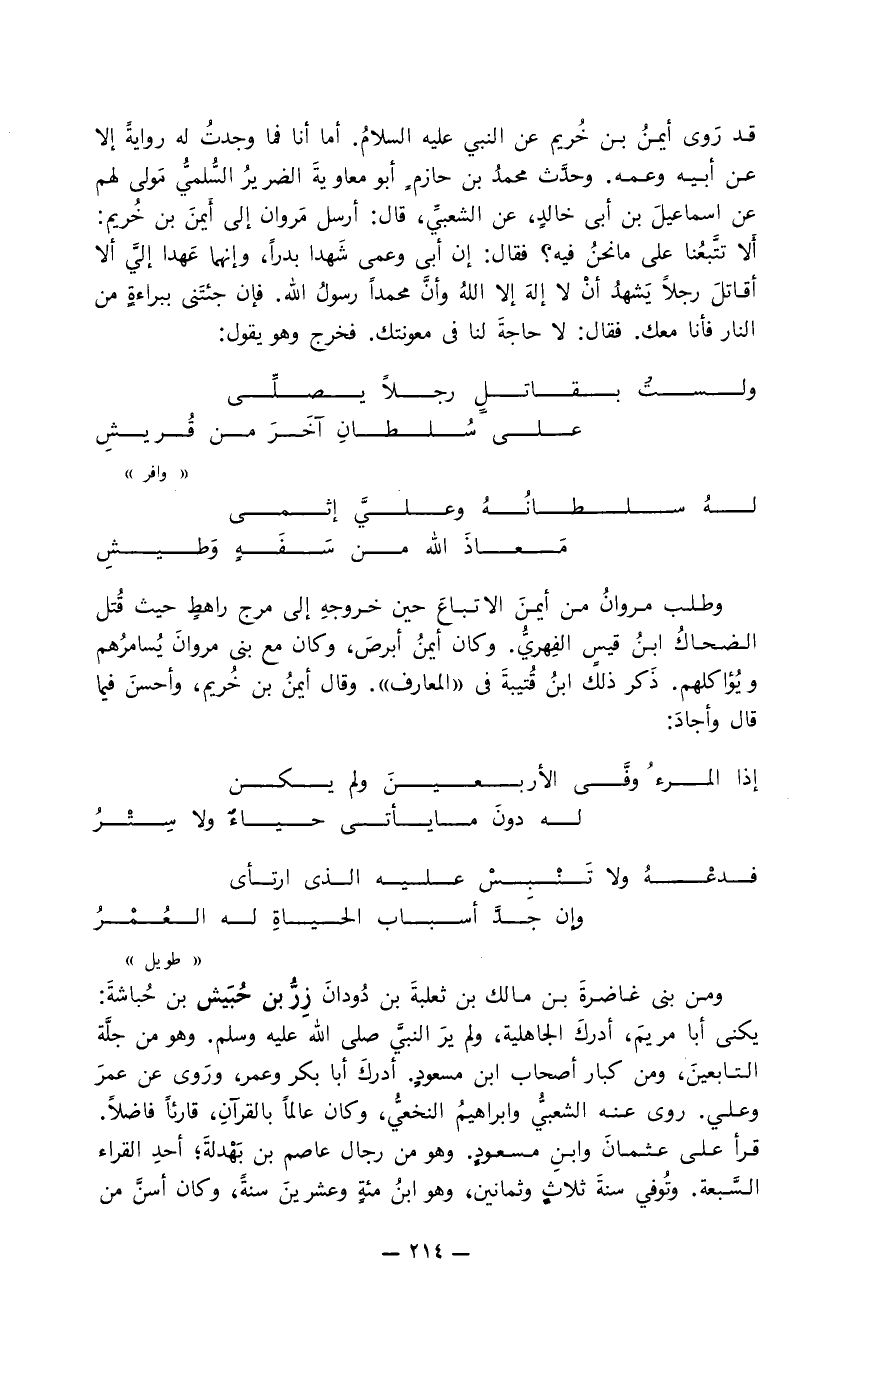 قد رَوى أيمنُ بن خُريم عن النبي عليه السلامُ. أما أنا فما وجدتُ له روايةً إلا
عن أبيه وعمه. وحدَّث محمدُ بن حازمٍ أبو معاويةَ الضريرُ السُّلميُّ مَولى لهم
عن اسماعيلَ بن أبى خالدٍ، عن الشعبيِّ، قال: أرسل مَروان إلى أَيمنَ بن خُريم:
أَلا تتَّبعُنا على مانحنُ فيه؟ فقال: إن أبى وعمى شَهدا بدراً، وإنها عَهدا إليَّ ألا
أقاتلَ رجلاً يَشهدُ أنْ لا إلهَ إلا اللهُ وأنَّ محمداً رسولُ الله. فإن جئتَنى ببراءةٍ من
النار فأنا معك. فقال: لا حاجةَ لنا فى معونتك. فخرج وهو يقول:
ولستُ بقاتلٍ رجلاً يصلِّى
على سُلطانِ آخَرَ من قُريشِ
« وافر »
لهُ سلطانُهُ وعليَّ إثمى
مَعاذَ الله من سَفَهٍ وَطيشِ
وطلب مروانُ من أيمنَ الاتباعَ حين خروجهِ إلى مرج راهطٍ حيث قُتل
الضحاكُ ابنُ قيسٍ الفِهريُّ. وكان أيمنُ أبرصَ، وكان مع بنى مروانَ يُسامرُهم
ويُؤاكلهم. ذَكر ذلك ابنُ قُتيبةَ فى «المعارف». وقال أيمنُ بن خُريم، وأحسنَ فيما
قال وأجادَ:
إذا المرءُ وفَّى الأربعينَ ولم يكن
له دونَ مايأتى حياءٌ ولا سِتْرُ
فدعْهُ ولا تَنْبِسْ عليه الذى ارتأى
وإن جدَّ أسباب الحياةِ له العُمْرُ
« طويل »
ومن بنى غاضرةَ بن مالك بن ثعلبةَ بن دُودانَ زِرُّ بن حُبَيش بن حُباشةَ:
يكنى أبا مريمَ، أدركَ الجاهلية، ولم يرَ النبيَّ صلى الله عليه وسلم. وهو من جلَّة
التابعينَ، ومن كبار أصحاب ابن مسعودٍ. أدركَ أبا بكر وعمر، ورَوى عن عمرَ
وعلي. روى عنه الشعبيُّ وابراهيمُ النخعيُّ، وكان عالماً بالقرآنِ، قارئاً فاضلاً.
قرأ على عثمانَ وابنِ مسعودٍ. وهو من رجال عاصم بن بَهْدلةَ؛ أحدِ القراء
السَّبعة. وتُوفي سنةَ ثلاثٍ وثمانين، وهو ابنُ مئةٍ وعشرينَ سنةً، وكان أسنَّ من
— ٢١٤ —